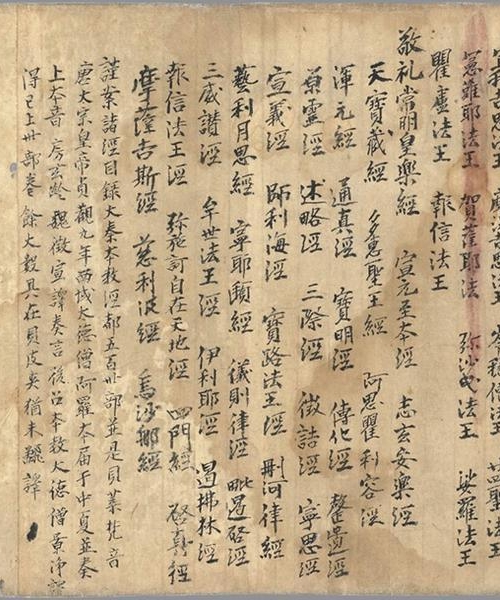 憲難耶法王 賀薩耶法 弥沙曳法王 娑羅法王
瞿盧法王 報信法王
敬礼常明皇樂經 宣元至本經 志玄安樂經
天寶藏經 多惠聖王經 阿思瞿利容經
渾元經 通真經 寶明經 傳化經 罄遺經
原靈經 述略經 三際經 徵詰經 寧思經
宣義經 師利海經 寶路法王經 刪河律經
藝利月思經 寧耶頲經 儀則律經 毗遏啓經
三威讚經 牟世法王經 伊利耶經 遏拂林經
報信法王經 弥施訶自在天地經 四門經 啓真經
摩薩吉斯經 慈利波經 烏沙郍經
謹案諸經目録大秦本教經都五百卅部並是貝葉梵音
唐太宗皇帝貞觀九年西域太德僧阿羅本届于中夏並奏
上本音房玄齡魏徵宣譯奏言後召本教大德僧景淨譯
得已上卅部卷餘大數具在貝皮夾猶未飜譯